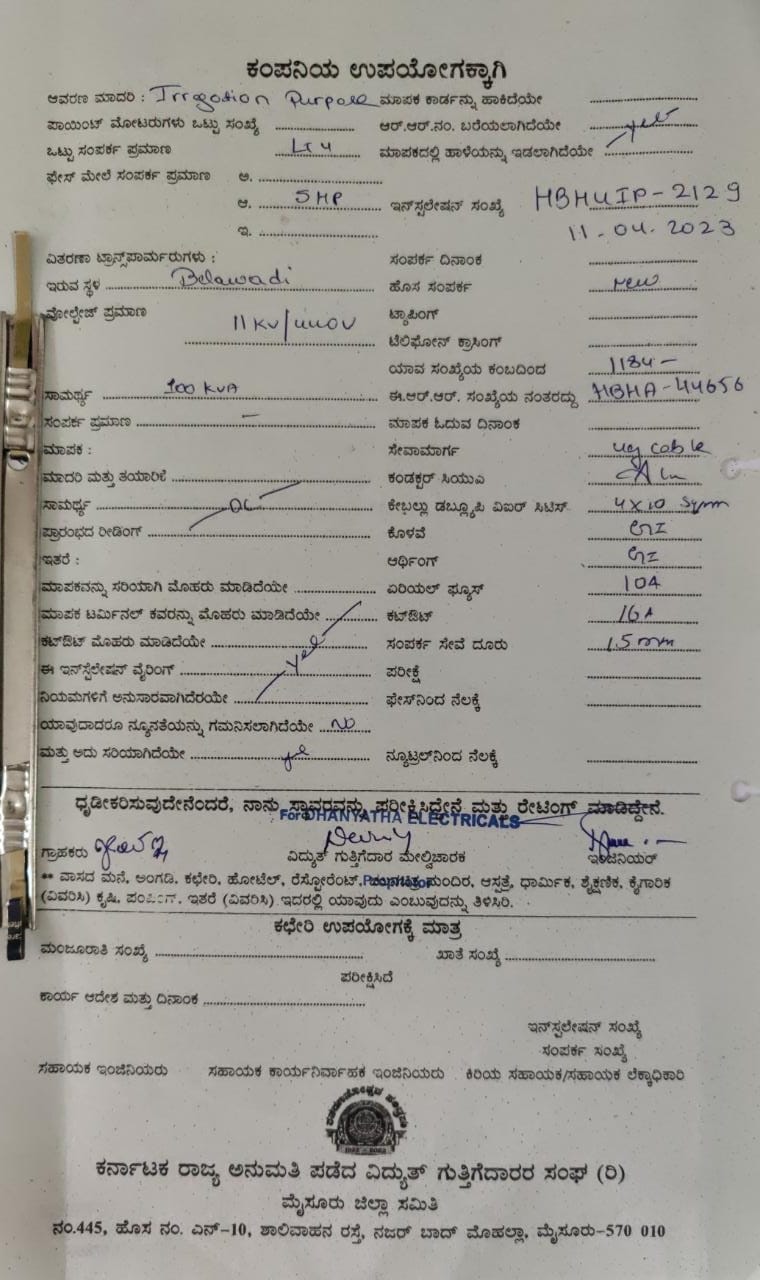 ಕಂಪನಿಯ ಉಪಯೋಗಕ್ಕಾಗಿ
ಆವರಣ ಮಾದರಿ : Irrigation Purpose ಮಾಪಕ ಕಾರ್ಡನ್ನು ಹಾಕಿದೆಯೇ
ಪಾಯಿಂಟ್ ಮೋಟರುಗಳು ಒಟ್ಟು ಸಂಖ್ಯೆ ಆರ್.ಆರ್.ನಂ. ಬರೆಯಲಾಗಿದೆಯೇ yes
ಒಟ್ಟು ಸಂಪರ್ಕ ಪ್ರಮಾಣ LT4 ಮಾಪಕದಲ್ಲಿ ಹಾಳೆಯನ್ನು ಇಡಲಾಗಿದೆಯೇ
ಫೇಸ್ ಮೇಲೆ ಸಂಪರ್ಕ ಪ್ರಮಾಣ ಅ.
ಆ. 5HP ಇನ್ಸ್ಟಲೇಷನ್ ಸಂಖ್ಯೆ HBHUIP-2129
ಇ. 11.04.2023
ವಿತರಣಾ ಟ್ರಾನ್ಸ್‌ಪಾರ್ಮರುಗಳು : ಸಂಪರ್ಕ ದಿನಾಂಕ
ಇರುವ ಸ್ಥಳ Belawadi ಹೊಸ ಸಂಪರ್ಕ new
ವೋಲ್ಟೇಜ್ ಪ್ರಮಾಣ 11KV/440V ಟ್ಯಾಪಿಂಗ್
ಟೆಲಿಫೋನ್ ಕ್ರಾಸಿಂಗ್
ಯಾವ ಸಂಖ್ಯೆಯ ಕಂಬದಿಂದ 1184 -
ಸಾಮರ್ಥ್ಯ 100 KVA ಈ.ಆರ್.ಆರ್. ಸಂಖ್ಯೆಯ ನಂತರದ್ದು HBHA-44656
ಸಂಪರ್ಕ ಪ್ರಮಾಣ - ಮಾಪಕ ಓದುವ ದಿನಾಂಕ
ಮಾಪಕ : ಸೇವಾಮಾರ್ಗ ug cable
ಮಾದರಿ ಮತ್ತು ತಯಾರಿಕೆ ಕಂಡಕ್ಟರ್ ಸಿಯುಎ
ಸಾಮರ್ಥ್ಯ ಕೇಬಲ್ಲು ಡಬ್ಲ್ಯೂಪಿ ವಿಐರ್ ಸಿಟಿಸ್. 4x10 Sqmm
ಪ್ರಾರಂಭದ ರೀಡಿಂಗ್ ಕೊಳವೆ GI
ಇತರೆ : ಆರ್ಥಿಂಗ್ GI
ಮಾಪಕವನ್ನು ಸರಿಯಾಗಿ ಮೊಹರು ಮಾಡಿದೆಯೇ ಏರಿಯಲ್ ಫ್ಯೂಸ್ 10A
ಮಾಪಕ ಟರ್ಮಿನಲ್ ಕವರನ್ನು ಮೊಹರು ಮಾಡಿದೆಯೇ ಕಟ್‌ಔಟ್ 16A
ಕಟ್‌ಔಟ್ ಮೊಹರು ಮಾಡಿದೆಯೇ ಸಂಪರ್ಕ ಸೇವೆ ದೂರು 1.5mm
ಈ ಇನ್‌ಸ್ಟೆಲೇಷನ್ ವೈರಿಂಗ್ yes ಪರೀಕ್ಷೆ
ನಿಯಮಗಳಿಗೆ ಅನುಸಾರವಾಗಿದೆರಯೇ ಫೇಸ್‌ನಿಂದ ನೆಲಕ್ಕೆ
ಯಾವುದಾದರೂ ನ್ಯೂನತೆಯನ್ನು ಗಮನಿಸಲಾಗಿದೆಯೇ NO
ಮತ್ತು ಅದು ಸರಿಯಾಗಿದೆಯೇ yes ನ್ಯೂಟ್ರಲ್‌ನಿಂದ ನೆಲಕ್ಕೆ
ಧೃಡೀಕರಿಸುವುದೇನೆಂದರೆ, ನಾನು ಸ್ಥಾವರವನ್ನು ಪರೀಕ್ಷಿಸಿದ್ದೇನೆ ಮತ್ತು ರೇಟಿಂಗ್ ಮಾಡಿದ್ದೇನೆ.
For DHANYATHA ELECTRICALS
ಗ್ರಾಹಕರು ವಿದ್ಯುತ್ ಗುತ್ತಿಗೆದಾರ ಮೇಲ್ವಿಚಾರಕ ಇಂಜಿನಿಯರ್
** ವಾಸದ ಮನೆ, ಅಂಗಡಿ, ಕಛೇರಿ, ಹೋಟೆಲ್, ರೆಸ್ಟೋರೆಂಟ್, ಮಂದಿರ, ಆಸ್ಪತ್ರೆ, ಧಾರ್ಮಿಕ, ಶೈಕ್ಷಣಿಕ, ಕೈಗಾರಿಕ
(ವಿವರಿಸಿ) ಕೃಷಿ, ಇತರೆ (ವಿವರಿಸಿ) ಇದರಲ್ಲಿ ಯಾವುದು ಎಂಬುವುದನ್ನು ತಿಳಿಸಿರಿ.
ಕಛೇರಿ ಉಪಯೋಗಕ್ಕೆ ಮಾತ್ರ
ಮಂಜೂರಾತಿ ಸಂಖ್ಯೆ ಖಾತೆ ಸಂಖ್ಯೆ
ಪರೀಕ್ಷಿಸಿದೆ
ಕಾರ್ಯ ಆದೇಶ ಮತ್ತು ದಿನಾಂಕ
ಇನ್‌ಸ್ಟಲೇಷನ್ ಸಂಖ್ಯೆ
ಸಂಪರ್ಕ ಸಂಖ್ಯೆ
ಸಹಾಯಕ ಇಂಜಿನಿಯರು ಸಹಾಯಕ ಕಾರ್ಯನಿರ್ವಾಹಕ ಇಂಜಿನಿಯರು ಕಿರಿಯ ಸಹಾಯಕ/ಸಹಾಯಕ ಲೆಕ್ಕಾಧಿಕಾರಿ
ಕರ್ನಾಟಕ ರಾಜ್ಯ ಅನುಮತಿ ಪಡೆದ ವಿದ್ಯುತ್ ಗುತ್ತಿಗೆದಾರರ ಸಂಘ (ರಿ)
ಮೈಸೂರು ಜಿಲ್ಲಾ ಸಮಿತಿ
ನಂ.445, ಹೊಸ ನಂ. ಎನ್-10, ಶಾಲಿವಾಹನ ರಸ್ತೆ, ನಜರ್ ಬಾದ್ ಮೊಹಲ್ಲಾ, ಮೈಸೂರು-570 010